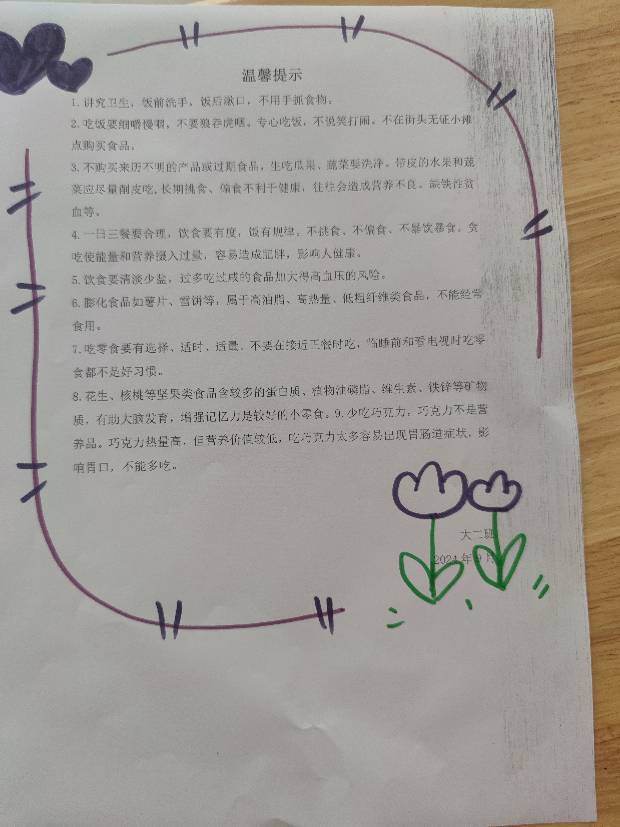 温馨提示
1. 讲究卫生，饭前洗手，饭后漱口，不用手抓食物。
2. 吃饭要细嚼慢咽，不要狼吞虎咽。专心吃饭，不说笑打闹。不在街头无证小滩
点购买食品。
3. 不购买来历不明的产品或过期食品，生吃瓜果、蔬菜要洗净。带皮的水果和蔬
菜应尽量削皮吃，长期挑食、偏食不利于健康，往往会造成营养不良。缺铁性贫
血等。
4. 一日三餐要合理，饮食要有度，饭有规律。不挑食、不偏食、不暴饮暴食。贪
吃使能量和营养摄入过量，容易造成肥胖，影响人健康。
5. 饮食要清淡少盐，过多吃过咸的食品加大得高血压的风险。
6. 膨化食品如薯片、雪饼等，属于高油脂、高热量、低粗纤维类食品，不能经常
食用。
7. 吃零食要有选择、适时、适量。不要在接近正餐时吃，临睡前和看电视时吃零
食都不是好习惯。
8. 花生、核桃等坚果类食品含较多的蛋白质、植物油磷脂、维生素、铁锌等矿物
质，有助大脑发育，增强记忆力是较好的小零食。9. 少吃巧克力，巧克力不是营
养品。巧克力热量高，但营养价值较低，吃巧克力太多容易出现胃肠道症状，影
响胃口，不能多吃。
大二班
2024 年 9 月